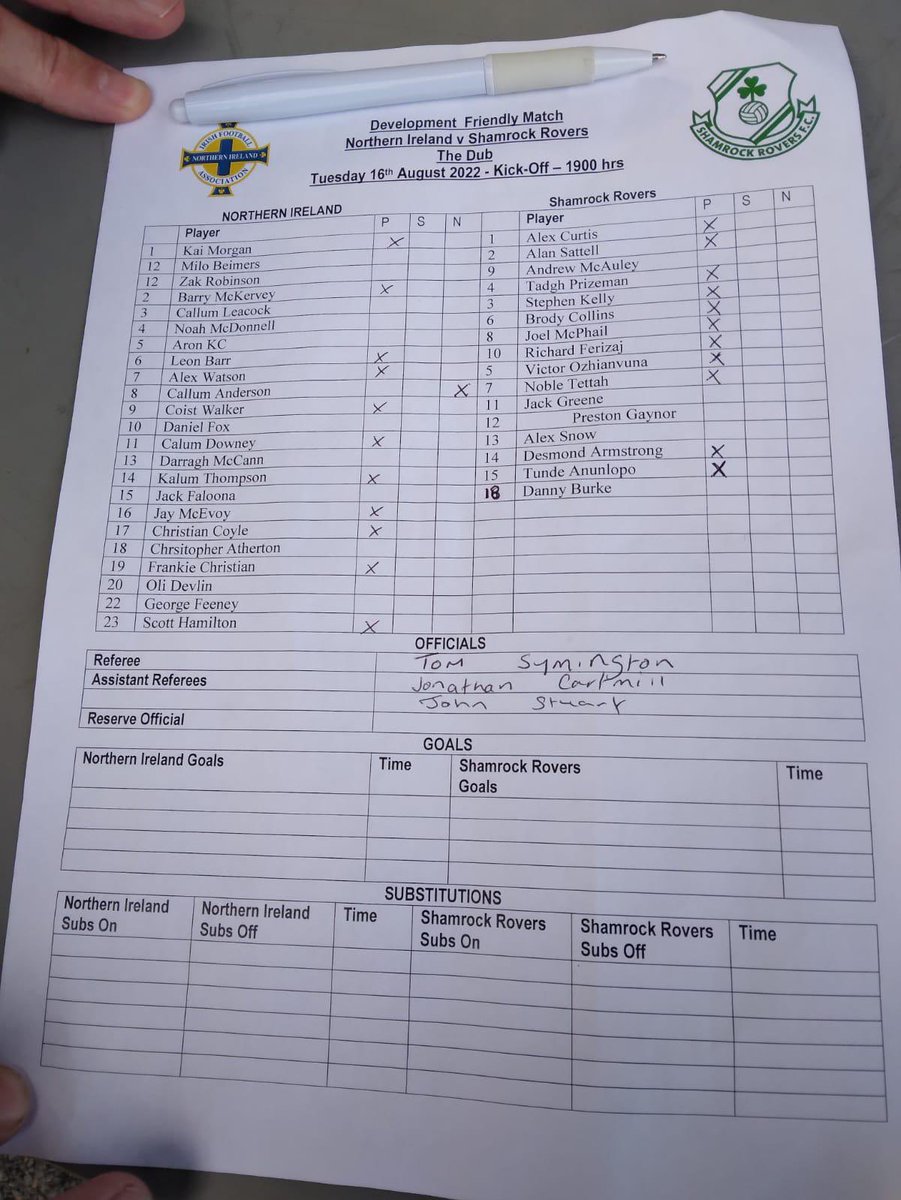 Development Friendly Match
Northern Ireland v Shamrock Rovers
The Dub
Tuesday 16th August 2022 - Kick-Off – 1900 hrs
IRISH FOOTBALL
NORTHERN IRELAND
ASSOCIATION
SHAMROCK ROVERS F.C.
NORTHERN IRELAND
Player P S N
1 Kai Morgan X
12 Milo Beimers
12 Zak Robinson
2 Barry McKervey X
3 Callum Leacock
4 Noah McDonnell
5 Aron KC
6 Leon Barr X
7 Alex Watson X
8 Callum Anderson X
9 Coist Walker X
10 Daniel Fox
11 Calum Downey X
13 Darragh McCann
14 Kalum Thompson X
15 Jack Faloona
16 Jay McEvoy X
17 Christian Coyle X
18 Chrsitopher Atherton
19 Frankie Christian X
20 Oli Devlin
22 George Feeney
23 Scott Hamilton X
Shamrock Rovers
Player P S N
1 Alex Curtis X
2 Alan Sattell X
9 Andrew McAuley
4 Tadgh Prizeman X
3 Stephen Kelly X
6 Brody Collins X
8 Joel McPhail X
10 Richard Ferizaj X
5 Victor Ozhianvuna X
7 Noble Tettah X
11 Jack Greene
12 Preston Gaynor
13 Alex Snow
14 Desmond Armstrong X
15 Tunde Anunlopo X
18 Danny Burke
OFFICIALS
Referee Tom Symington
Assistant Referees Jonathan Cartmill
John Stuart
Reserve Official
GOALS
Northern Ireland Goals Time Shamrock Rovers Time
Goals
SUBSTITUTIONS
Northern Ireland Northern Ireland Time Shamrock Rovers Shamrock Rovers Time
Subs On Subs Off Subs On Subs Off